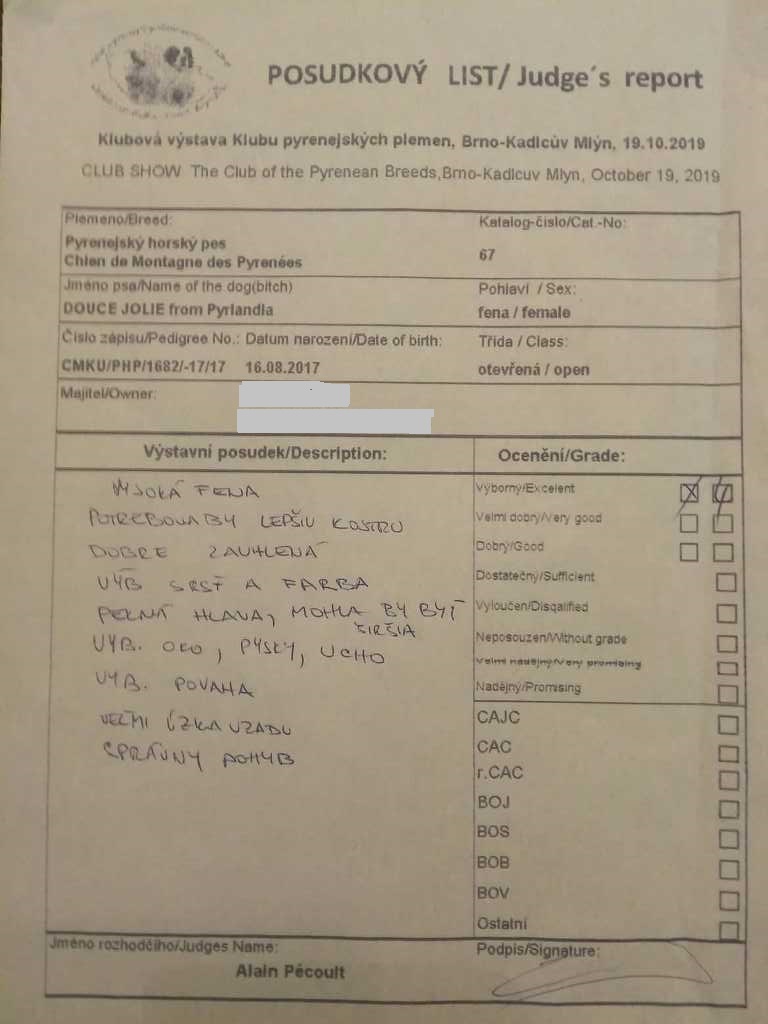 POSUDKOVÝ LIST/ Judge´s report
Klubová výstava Klubu pyrenejských plemen, Brno-Kadlcův Mlýn, 19.10.2019
CLUB SHOW The Club of the Pyrenean Breeds,Brno-Kadlcuv Mlyn, October 19, 2019
Plemeno/Breed:
Katalog-číslo/Cat.-No:
Pyrenejský horský pes
Chien de Montagne des Pyrenées
67
Jméno psa/Name of the dog(bitch)
Pohlaví / Sex:
DOUCE JOLIE from Pyrlandia
fena / female
Číslo zápisu/Pedigree No.: Datum narození/Date of birth:
Třída / Class:
CMKU/PHP/1682/-17/17 16.08.2017
otevřená / open
Majitel/Owner:
Výstavní posudek/Description:
Ocenění/Grade:
VYSOKÁ FENA
POTREBOVALA BY LEPŠIU KOSTRU
DOBRE ZAUHLENÁ
VÝB SRSŤ A FARBA
PEKNÁ HLAVA, MOHLA BY BYŤ
ŠIRŠIA
VÝB. OKO, PYSKY, UCHO
VÝB. POVAHA
VEĽMI ÚZKA VZADU
SPRÁVNY POHYB
Výborný/Excelent
Velmi dobrý/Very good
Dobrý/Good
Dostatečný/Sufficient
Vyloučen/Disqalified
Neposouzen/Without grade
Velmi nadějný/Very promising
Nadějný/Promising
CAJC
CAC
r.CAC
BOJ
BOS
BOB
BOV
Ostatní
Jméno rozhodčího/Judges Name:
Podpis/Signature:
Alain Pécoult